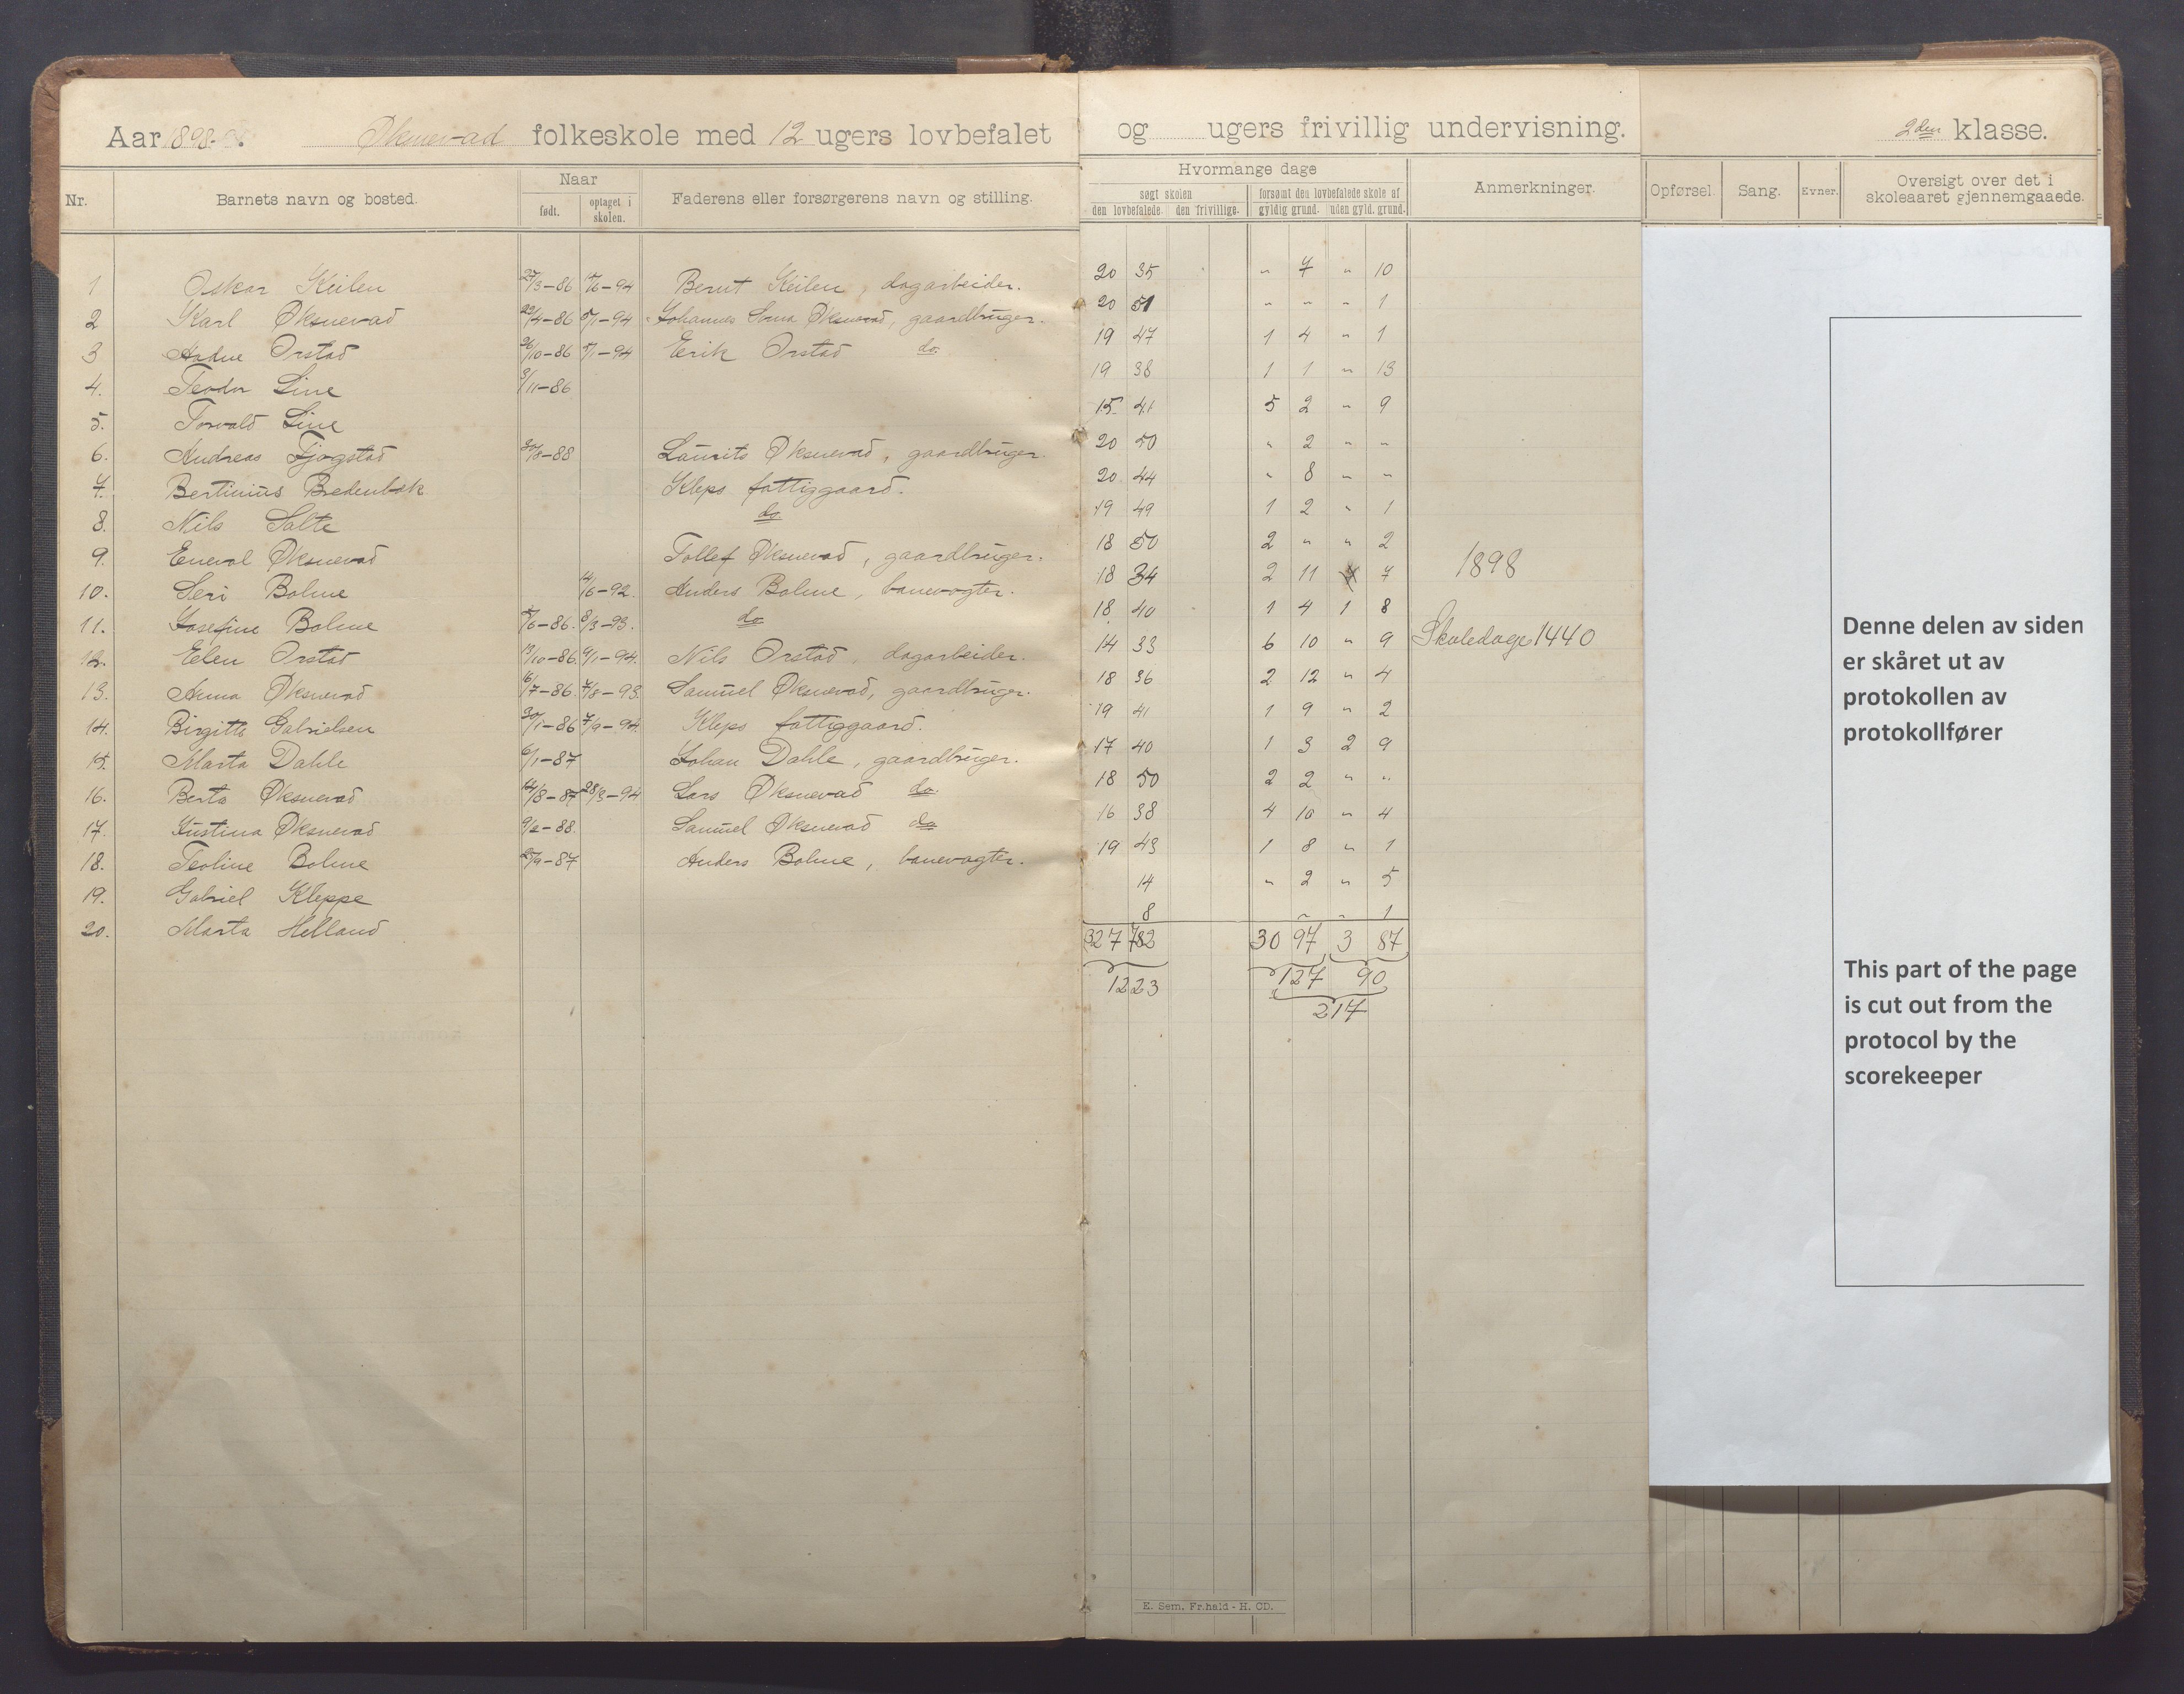 Aar 1898- Øksnevad folkeskole med 12 ugers lovbefalet og ugers frivillig undervisning. 2den klasse.
Nr. Barnets navn og bosted. Naar født. optaget i skolen. Faderens eller forsørgerens navn og stilling. Hvormange dage søgt skolen den lovbefalede. den frivillige. forsømt den lovbefalede skole af gyldig grund. uden gyld. grund. Anmerkninger. Opførsel. Sang. Evner. Oversigt over det i skoleaaret gjennemgaaede.
1 Oskar Keilen 27/3-86 /6-94 Berut Keilen, dagarbeider. 20 35 " 7 " 10
2 Karl Øksnevad 29/4-86 5/1-94 Johannes Øksnevad, gaardbruger. 20 51 " " " 1
3 Aadne Orstad 26/10-86 5/1-94 Erik Orstad do. 19 47 1 4 " 1
4. Teodor Line 3/11-86 19 38 1 1 " 13
5. Torvald Line 15 41 5 2 " 9
6. Andreas Fjogstad 30/8-88 Laurits Øksnevad, gaardbruger. 20 50 " 2 " "
7. Bertinius Bredenbæk Kleps fattiggaard. 20 44 " 8 " "
8. Nils Salte do 19 49 1 2 " 1
9. Eneval Øksnevad Tollef Øksnevad, gaardbruger. 18 50 2 " " 2
10. Seri Bolme 14/6-92. Anders Bolme, banevogter. 18 34 2 11 7 1898
11. Josefine Bolme /6-86. 8/3-93. do 18 40 1 4 1 8
12. Elen Orstad 13/10-86. 9/1-94. Nils Orstad, dagarbeider. 14 33 6 10 " 9 Skoledage 1440
13. Anna Øksnevad 16/7-86. 7/8-93. Samuel Øksnevad, gaardbruger. 18 36 2 12 " 4
14. Birgitte Gabrielsen 30/1-86 7/9-94. Kleps fattiggaard. 19 41 1 9 " 2
15. Marta Dahle 6/1-87 Johan Dahle, gaardbruger. 17 40 1 3 2 9
16. Berta Øksnevad 14/8-87 28/3-94 Lars Øksnevad do. 18 50 2 2 " "
17. Justina Øksnevad 9/2-88. Samuel Øksnevad do 16 38 4 10 " 4
18. Teoline Bolme 27/9-87 Anders Bolme, banevogter. 19 43 1 8 " 1
19. Gabriel Kleppe 14 " 2 " 5
20. Marta Helland 8 " " 1
327 782 30 97 3 87
1223 127 90
217
Denne delen av siden
er skåret ut av
protokollen av
protokollfører
This part of the page
is cut out from the
protocol by the
scorekeeper
E. Sem. Fr.hald - H. CD.